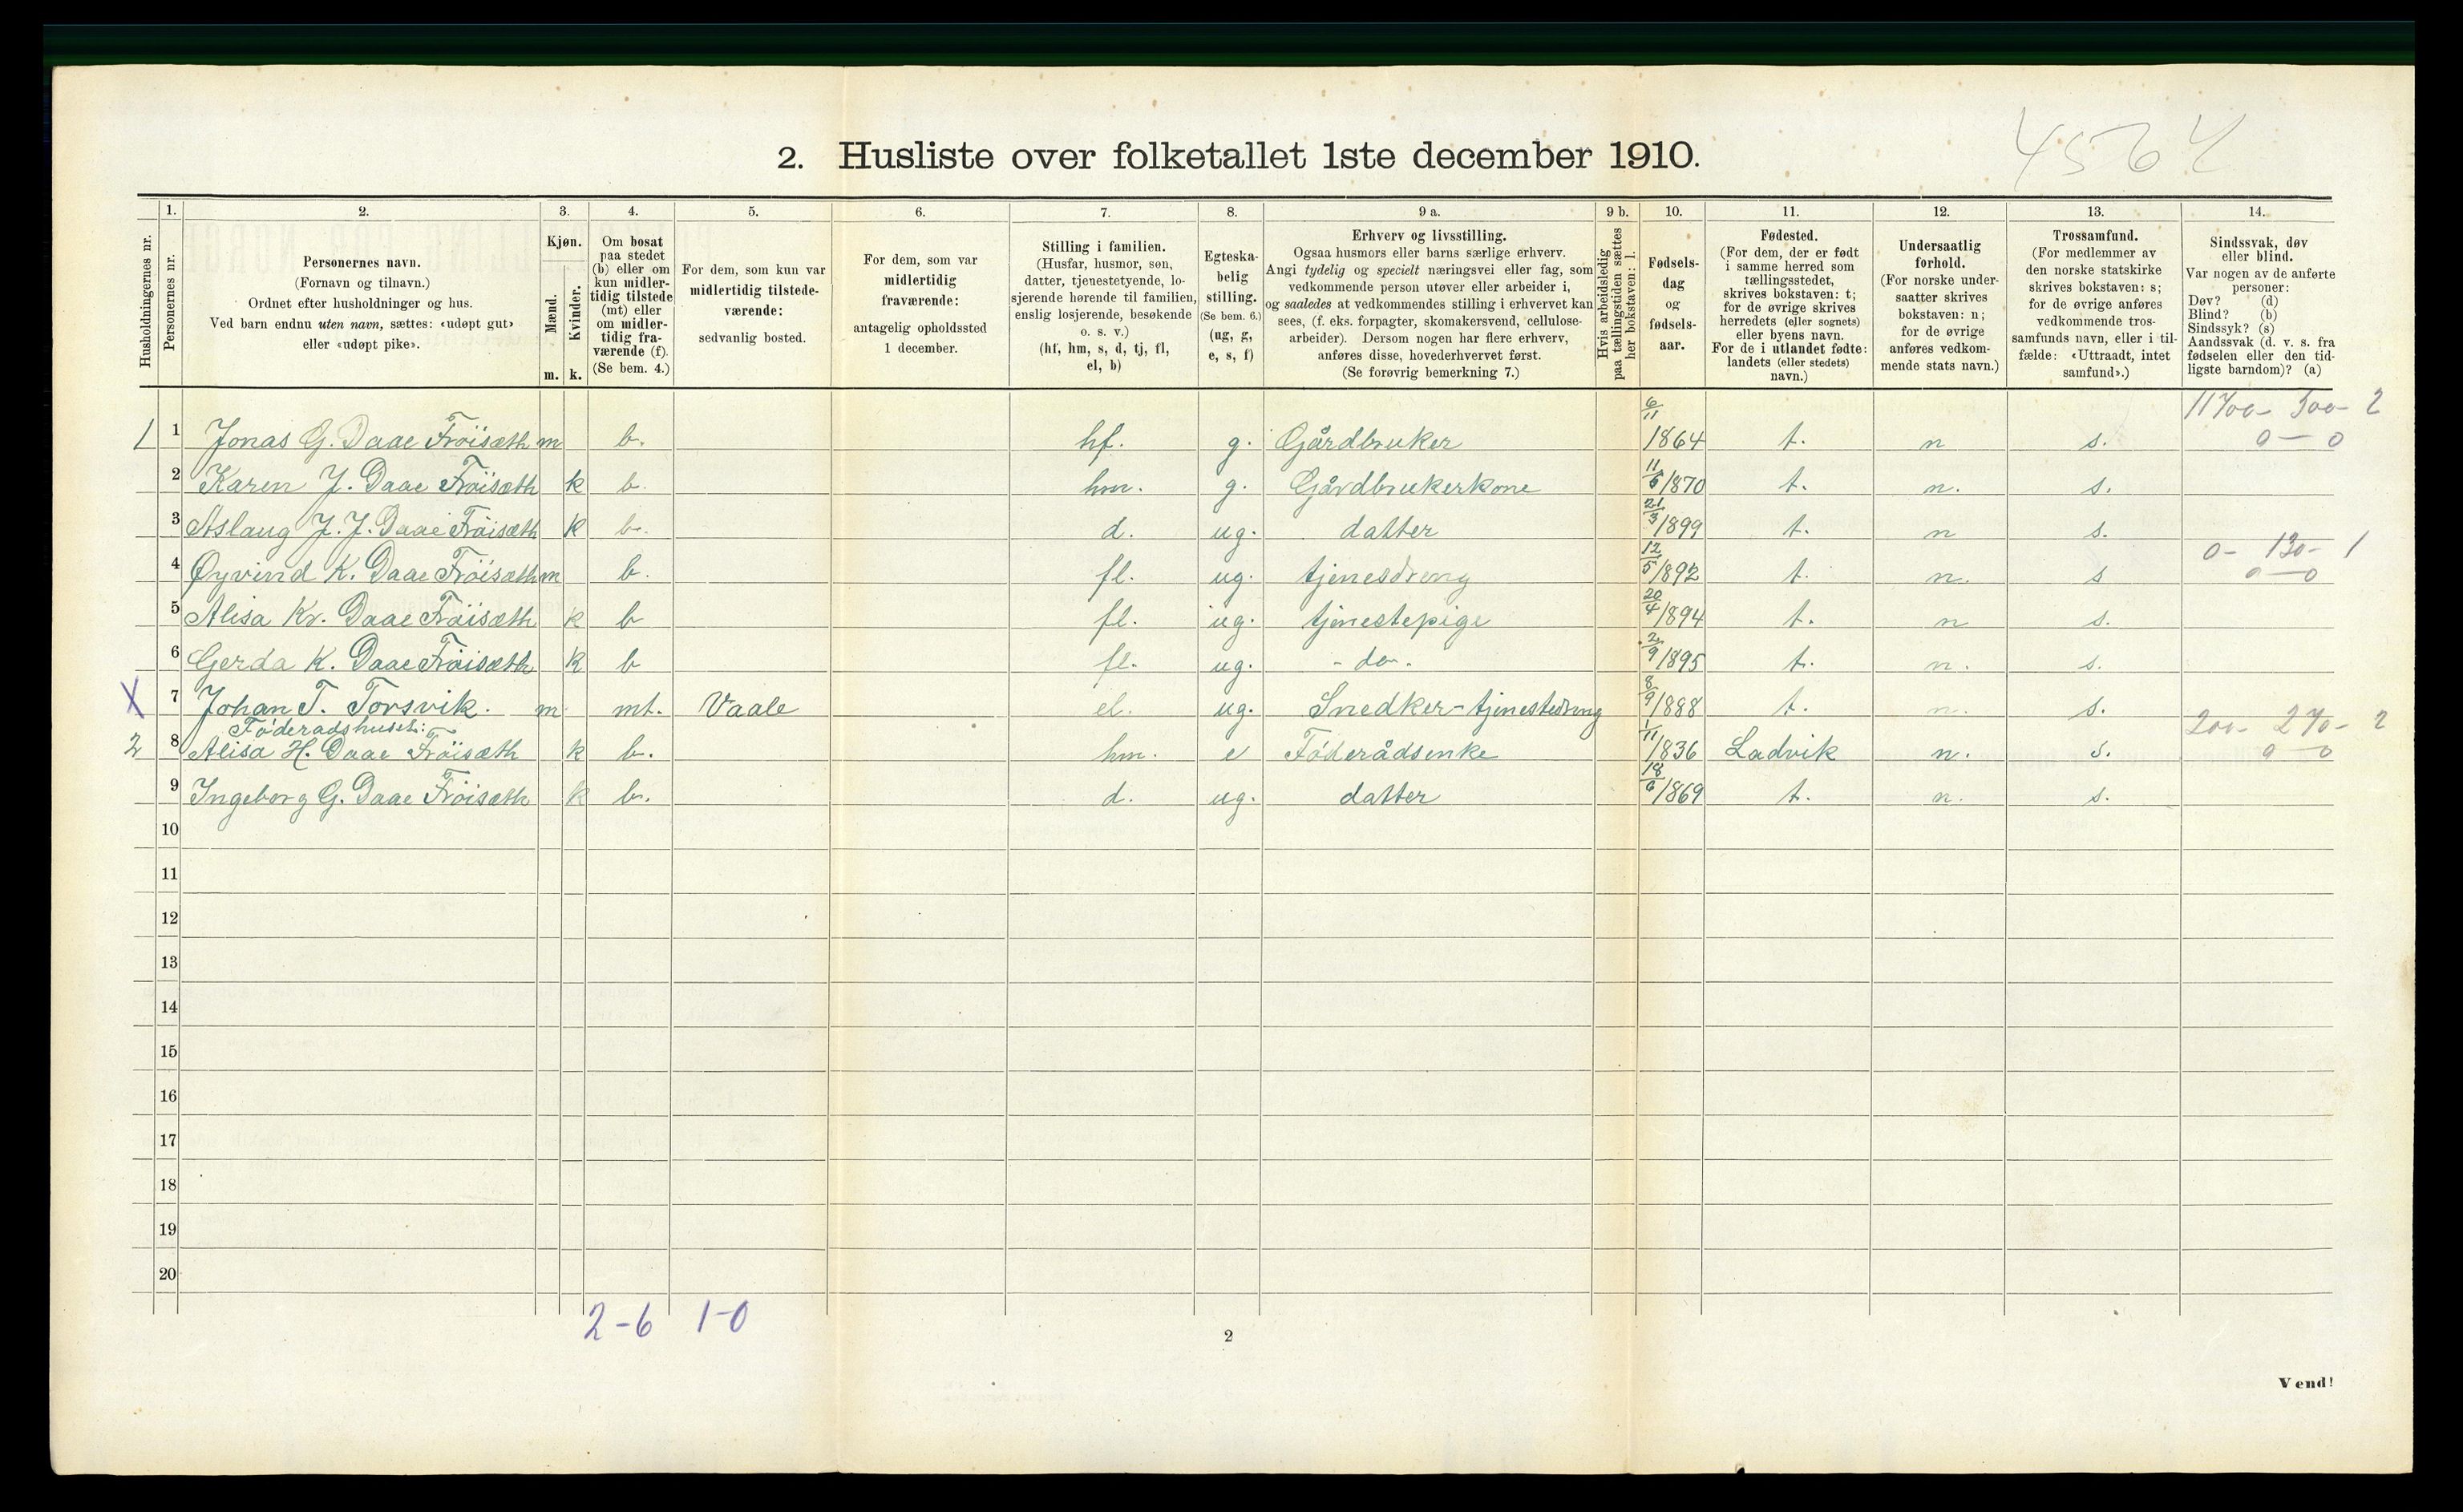 4564
2. Husliste over folketallet 1ste december 1910.
Husholdningernes nr.
1. Personernes nr.
2. Personernes navn.
(Fornavn og tilnavn.)
Ordnet efter husholdninger og hus.
Ved barn endnu uten navn, sættes: «udøpt gut»
eller «udøpt pike».
3. Kjøn.
Mænd. m.
Kvinder. k.
4. Om bosat
paa stedet
(b) eller om
kun midler-
tidig tilstede
(mt) eller
om midler-
tidig fra-
værende (f).
(Se bem. 4.)
5. For dem, som kun var
midlertidig tilstede-
værende:
sedvanlig bosted.
6. For dem, som var
midlertidig
fraværende:
antagelig opholdssted
1 december.
7. Stilling i familien.
(Husfar, husmor, søn,
datter, tjenestetyende, lo-
sjerende hørende til familien,
enslig losjerende, besøkende
o. s. v.)
(hf, hm, s, d, tj, fl,
el, b)
8. Egteska-
belig
stilling.
(Se bem. 6.)
(ug, g,
e, s, f)
9 a. Erhverv og livsstilling.
Ogsaa husmors eller barns særlige erhverv.
Angi tydelig og specielt næringsvei eller fag, som
vedkommende person utøver eller arbeider i,
og saaledes at vedkommendes stilling i erhvervet kan
sees, (f. eks. forpagter, skomakersvend, cellulose-
arbeider). Dersom nogen har flere erhverv,
anføres disse, hovederhvervet først.
(Se forøvrig bemerkning 7.)
9 b. Hvis arbeidsledig
paa tællingstiden sættes
her bokstaven: l.
10. Fødsels-
dag
og
fødsels-
aar.
11. Fødested.
(For dem, der er født
i samme herred som
tællingsstedet,
skrives bokstaven: t;
for de øvrige skrives
herredets (eller sognets)
eller byens navn.
For de i utlandet fødte:
landets (eller stedets)
navn.)
12. Undersaatlig
forhold.
(For norske under-
saatter skrives
bokstaven: n;
for de øvrige
anføres vedkom-
mende stats navn.)
13. Trossamfund.
(For medlemmer av
den norske statskirke
skrives bokstaven: s;
for de øvrige anføres
vedkommende tros-
samfunds navn, eller i til-
fælde: «Uttraadt, intet
samfund».)
14. Sindssvak, døv
eller blind.
Var nogen av de anførte
personer:
Døv? (d)
Blind? (b)
Sindssyk? (s)
Aandssvak (d. v. s. fra
fødselen eller den tid-
ligste barndom)? (a)
1 1 Jonas G. Daae Fröisæth m b. hf. g. Gårdbruker 6/11 1864 t. n s. 11700- 500- 2 0-0
2 Karen J. Daae Fröisæth k b. hm. g. Gårdbrukerkone 11/5 1870 t. n. s.
3 Aslaug J. J. Daae Fröisæth k b. d. ug. datter 21/3 1899 t. n s.
4 Øyvind K. Daae Fröisæth m b. fl. ug. tjenesdreng 12/5 1892 t. n. s 0- 130- 1 0-0
5 Alisa Kr. Daae Fröisæth k b fl. ug. tjenestepige 20/4 1894 t. n s.
6 Gerda K. Daae Fröisæth k b fl. ug. - do. 2/9 1895 t. n. s.
X 7 Johan T. Torsvik. m mt. Vaale el. ug. Snedker-tjenestedreng 8/9 1888 t. n. s.
Föderadshuset:
2 8 Alisa H. Daae Fröisæth k b. hm. e Föderådsenke 1/11 1836 Ladvik n. s. 200- 270- 2 0-0
9 Ingeborg G. Daae Fröisæth k b. d. ug. datter 18/6 1869 t. n. s.
10
11
12
13
14
15
16
17
18
19
20
2-6 1-0
2
Vend!